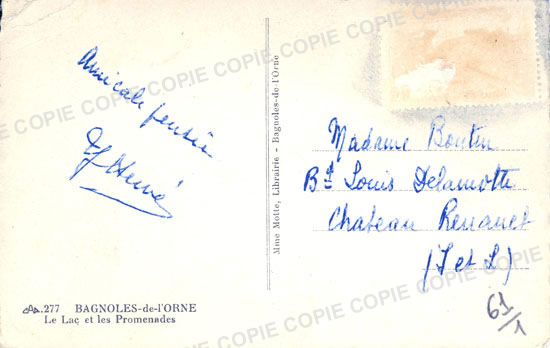 COPIE COPIE COPIE COPIE COPIE COPIE
Amicale pensée
Hervé
277 BAGNOLES-de-l'ORNE
Le Lac et les Promenades
Mme Motte, Librairie - Bagnoles-de-l'Orne
Madame
Bd Louis Delamotte
Chateau Renault
(I et L)
61/1